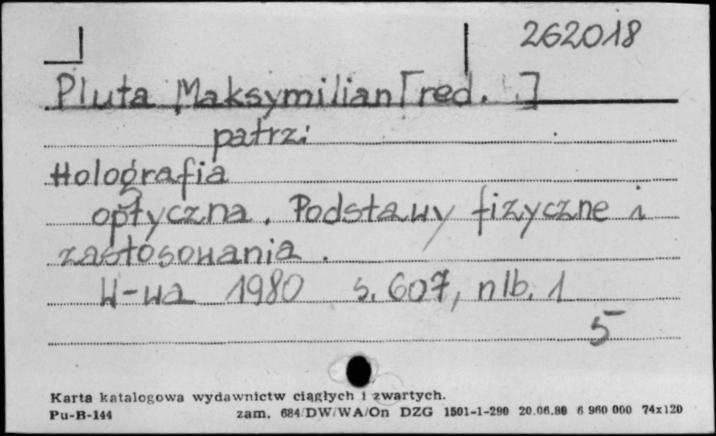 262018
Pluta Maksymilian [red. ]
patrz:
Holografia
optyczna. Podstawy fizyczne i
zastosowania.
W-wa 1980 s. 607, nlb. 1
5
Karta katalogowa wydawnictw ciągłych i zwartych.
Pu-B-144 zam. 684/DW/WA/On DZG 1501-1-290 20.06.80 6 960 000 74x120